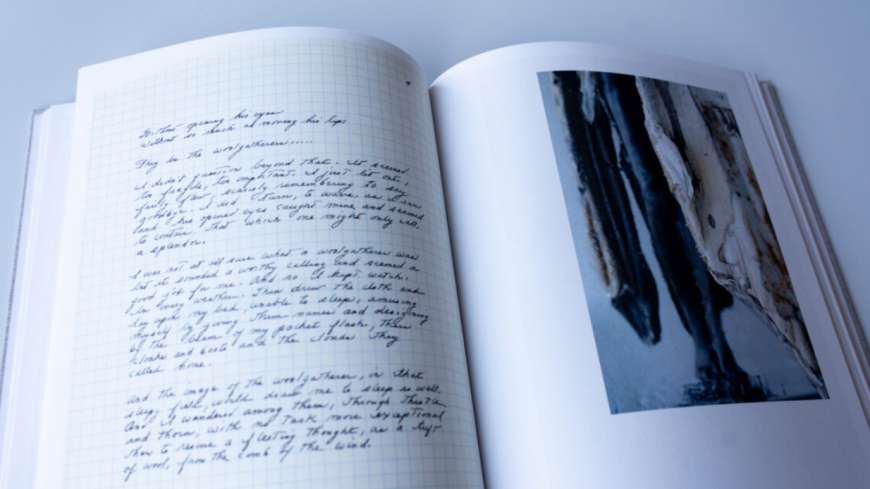 Without opening his eyes
without so much as moving his lips
They be the woolgatherers.....
I didn't question beyond that. It seemed
too fragile, too important. I just let out,
fairly flew, scarcely remembering to say
goodbye. I did turn, to wave, as I ran
and his opened eyes caught mine and seemed
to contain that which one might only call,
a splendor.
I was not at all sure what a woolgatherer was
but it sounded a worthy calling and seemed a
good job for me. And so I kept watch.
In every weather. Then drew the cloth and
lay upon my bed, unable to sleep, amusing
myself by giving them names and designing
by the beam of my pocket flash, their
cloaks and boots and the clouds they
called home.
And the image of the woolgatherer, in that
sleepy fold, would draw me to sleep as well.
And I wandered among them, through thistle
and thorn, with no task more exceptional
than to rescue a fleeting thought, as a tuft
of wool, from the comb of the wind.